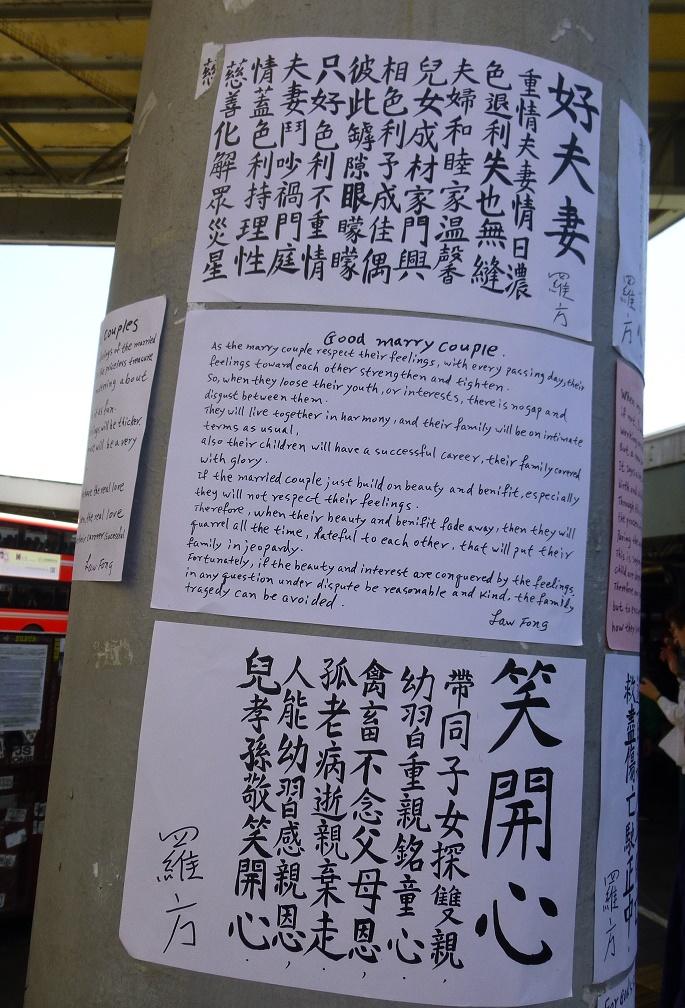 好夫妻
羅方
重情夫妻情日濃
色退利失也無縫
夫婦和睦家温馨
兒女成材家門興
相色利予成佳偶
彼此罅隙眼矇矇
只好色利不重情
夫妻鬥吵禍門庭
情蓋色利持理性
慈善化解眾災星
慈
Good marry couple.
As the marry couple respect their feelings, with every passing day, their
feelings toward each other strengthen and tighten.
So, when they loose their youth, or interests, there is no gap and
disgust between them.
They will live together in harmony, and their family will be on intimate
terms as usual,
also their children will have a successful career, their family covered
with glory.
If the married couple just build on beauty and benifit, especially
they will not respect their feelings.
Therefore, when their beauty and benifit fade away, then they will
quarrel all the time, hateful to each other, that will put their
family in jeopardy.
Fortunately, if the beauty and interest are conquered by the feelings,
in any question under dispute be reasonable and kind, the family
tragedy can be avoided.
Law Fong
笑開心
帶同子女探雙親,
幼習自重親銘童心.
禽畜不念父母恩,
孤老病逝親棄走.
人能幼習感親恩,
兒孝孫敬笑開心.
羅方
couples
of the married
priceless treasure
about
will be thicker
will be a very
have the real love
the real love
career successful
Law Fong
羅方
救盡傷亡
正中
羅方